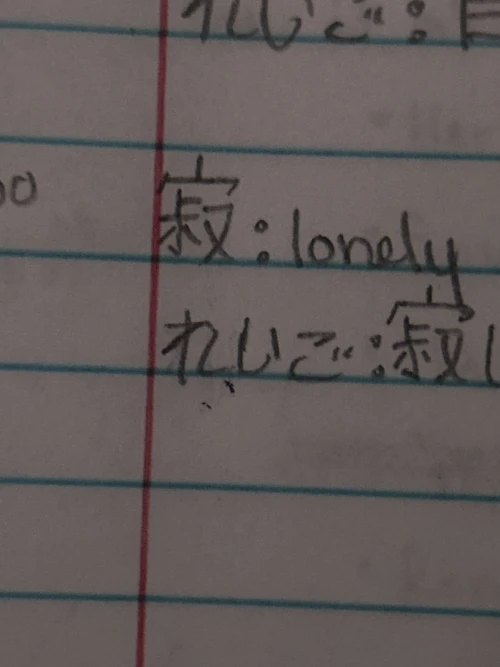 れいご:
00
寂:lonely
れいご:寂し